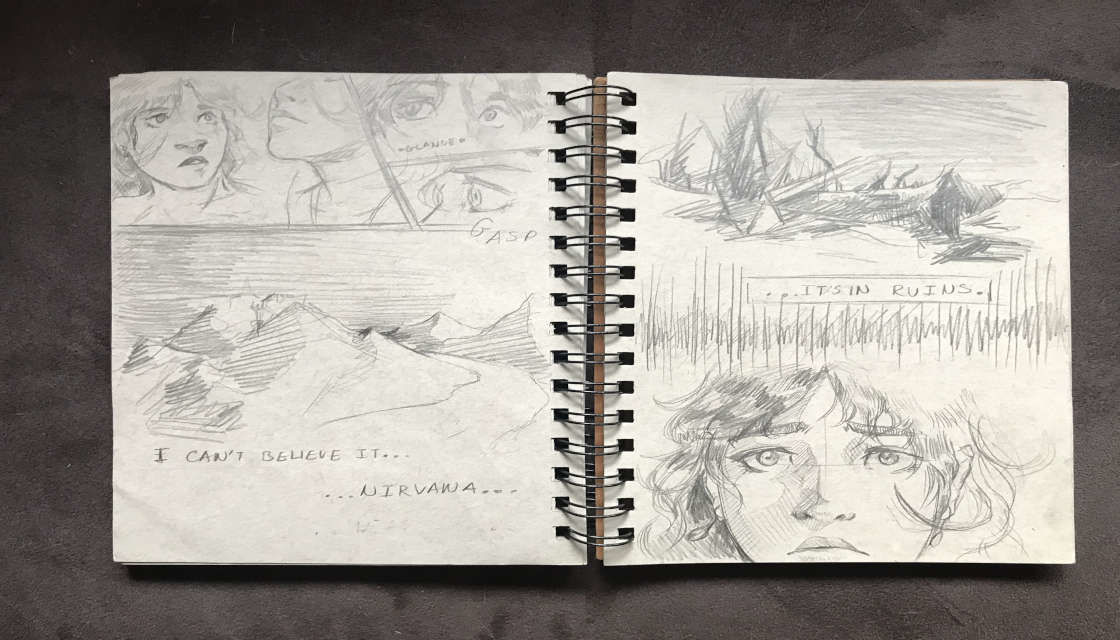 •GLANCE•
GASP
I CAN'T BELIEVE IT...
...NIRVANA...
...IT'S IN RUINS.